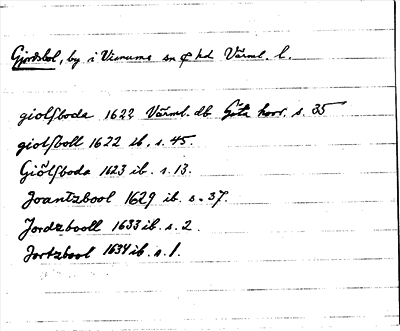 Gjordsbol, by i Visnums sn o hd Värml. l.
giolſboda 1622 Värml. db Göta hovr. s. 35
giolſboll 1622 ib. s. 45.
Giölſboda 1623 ib. s. 13.
Joantzbool 1629 ib. s. 37.
Jordzbooll 1633 ib. s. 2.
Jortzbool 1634 ib. s. 1.